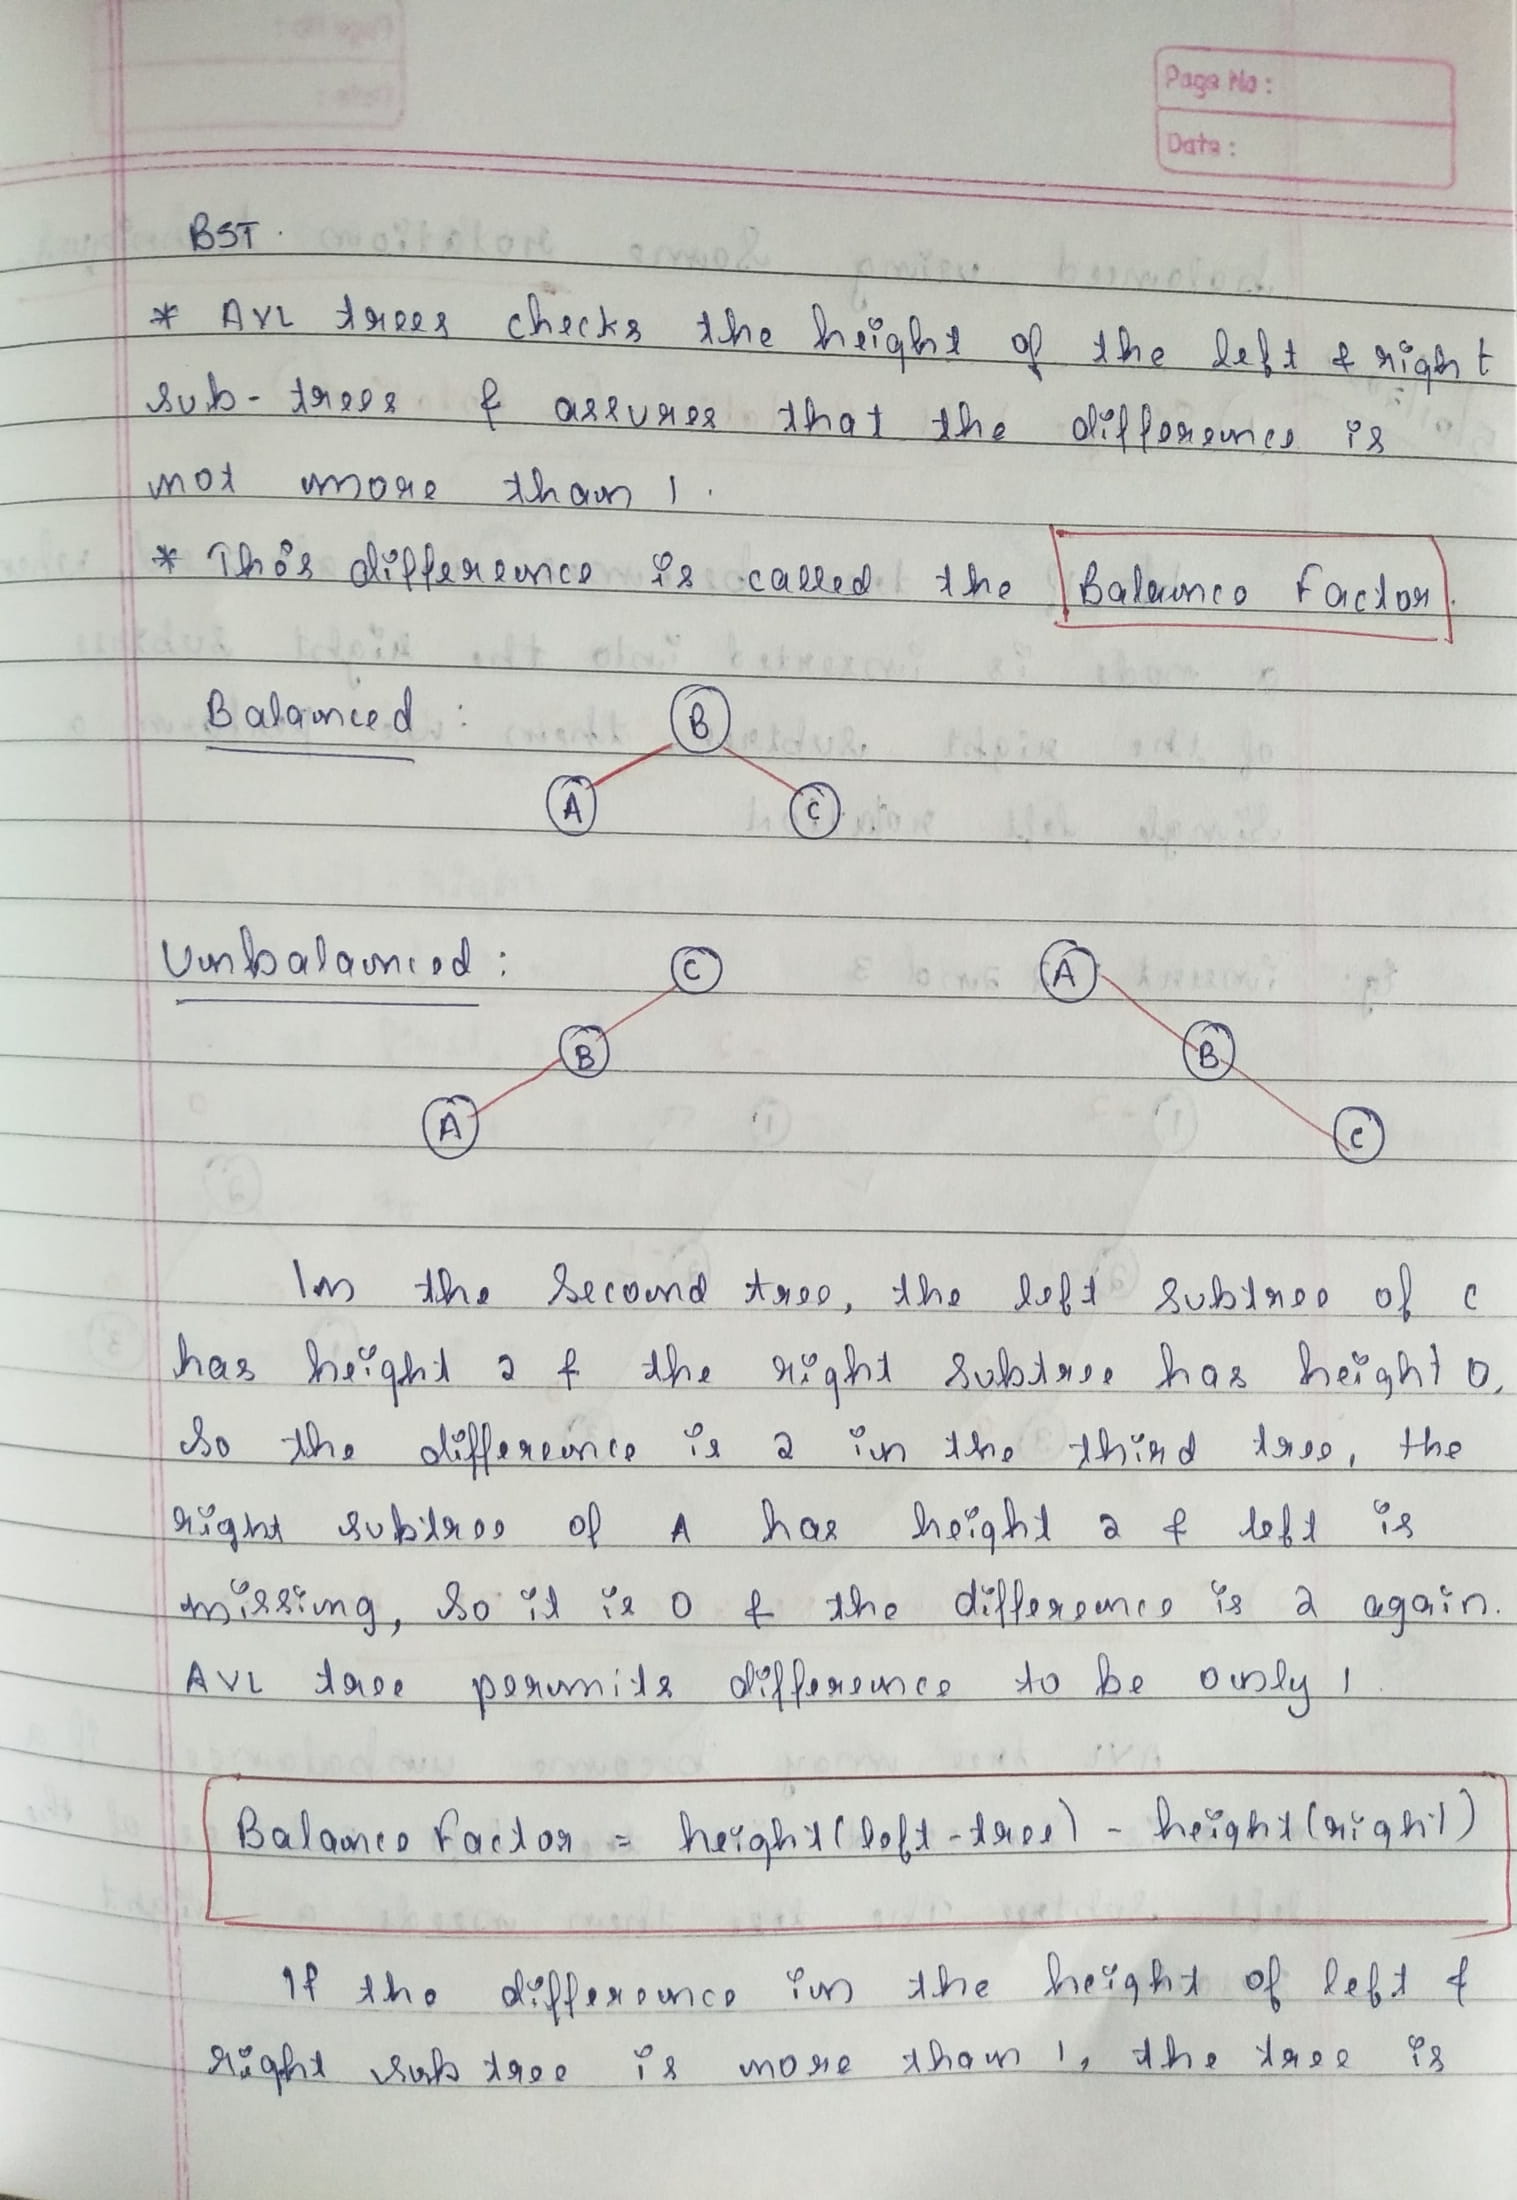 Page No :
Date :
BST.
* AVL trees checks the height of the left & right
sub-trees & assures that the difference is
not more than 1.
* This difference is called the Balance Factor.
Balanced :
B
A
C
Unbalanced :
C
A
B
B
A
C
In the second tree, the left subtree of C
has height 2 & the right subtree has height 0,
so the difference is 2 in the third tree, the
right subtree of A has height 2 & left is
missing, so it is 0 & the difference is 2 again.
AVL tree permits difference to be only 1.
Balance Factor = height(left-tree) - height(right)
If the difference in the height of left &
right sub tree is more than 1, the tree is